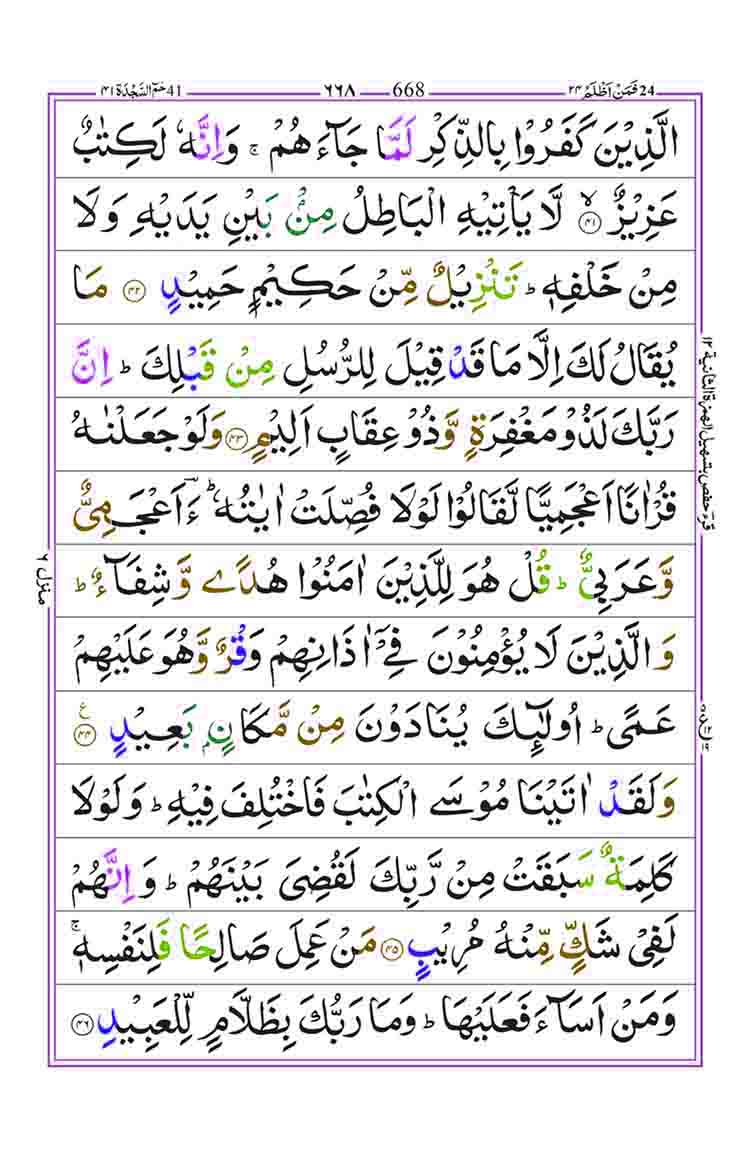 24 فَمَنْ اَظْلَمُ ۲۴ 668 ۶۶۸ 41 حٰمٓ السَّجْدَة ۴۱
الَّذِيْنَ كَفَرُوْا بِالذِّكْرِ لَمَّا جَآءَ هُمْ ۚ وَاِنَّهٗ لَكِتٰبٌ
عَزِيْزٌ ۙ‏﴿۴۱﴾ لَّا يَاْتِيْهِ الْبَاطِلُ مِنْۢ بَيْنِ يَدَيْهِ وَلَا
مِنْ خَلْفِهٖ ؕ تَنْزِيْلٌ مِّنْ حَكِيْمٍ حَمِيْدٍ ﴿۴۲﴾ مَا
يُقَالُ لَكَ اِلَّا مَا قَدْ قِيْلَ لِلرُّسُلِ مِنْ قَبْلِكَ ؕ اِنَّ
رَبَّكَ لَذُوْ مَغْفِرَةٍ وَّ ذُوْ عِقَابٍ اَلِيْمٍ ﴿۴۳﴾ وَلَوْ جَعَلْنٰهُ
قُرْاٰنًا اَعْجَمِيًّا لَّقَالُوْا لَوْلَا فُصِّلَتْ اٰيٰتُهٗ ؕ ءَؔاَعْجَمِىٌّ
وَّعَرَبِىٌّ ؕ قُلْ هُوَ لِلَّذِيْنَ اٰمَنُوْا هُدًى وَّشِفَآءٌ ؕ
وَالَّذِيْنَ لَا يُؤْمِنُوْنَ فِىْۤ اٰذَانِهِمْ وَقْرٌ وَّهُوَ عَلَيْهِمْ
عَمًى ؕ اُولٰٓئِكَ يُنَادَوْنَ مِنْ مَّكَانٍۢ بَعِيْدٍ ﴿۴۴﴾ ع
وَلَقَدْ اٰتَيْنَا مُوْسَى الْكِتٰبَ فَاخْتُلِفَ فِيْهِ ؕ وَلَوْلَا
كَلِمَةٌ سَبَقَتْ مِنْ رَّبِّكَ لَقُضِىَ بَيْنَهُمْ ؕ وَاِنَّهُمْ
لَفِىْ شَكٍّ مِّنْهُ مُرِيْبٍ ﴿۴۵﴾ مَنْ عَمِلَ صَالِحًا فَلِنَفْسِهٖ ۚ
وَمَنْ اَسَآءَ فَعَلَيْهَا ؕ وَمَا رَبُّكَ بِظَلَّامٍ لِّلْعَبِيْدِ ﴿۴۶﴾
قرء حفص بتسهيل الهمزة الثانية ۱۲
منزل ۶